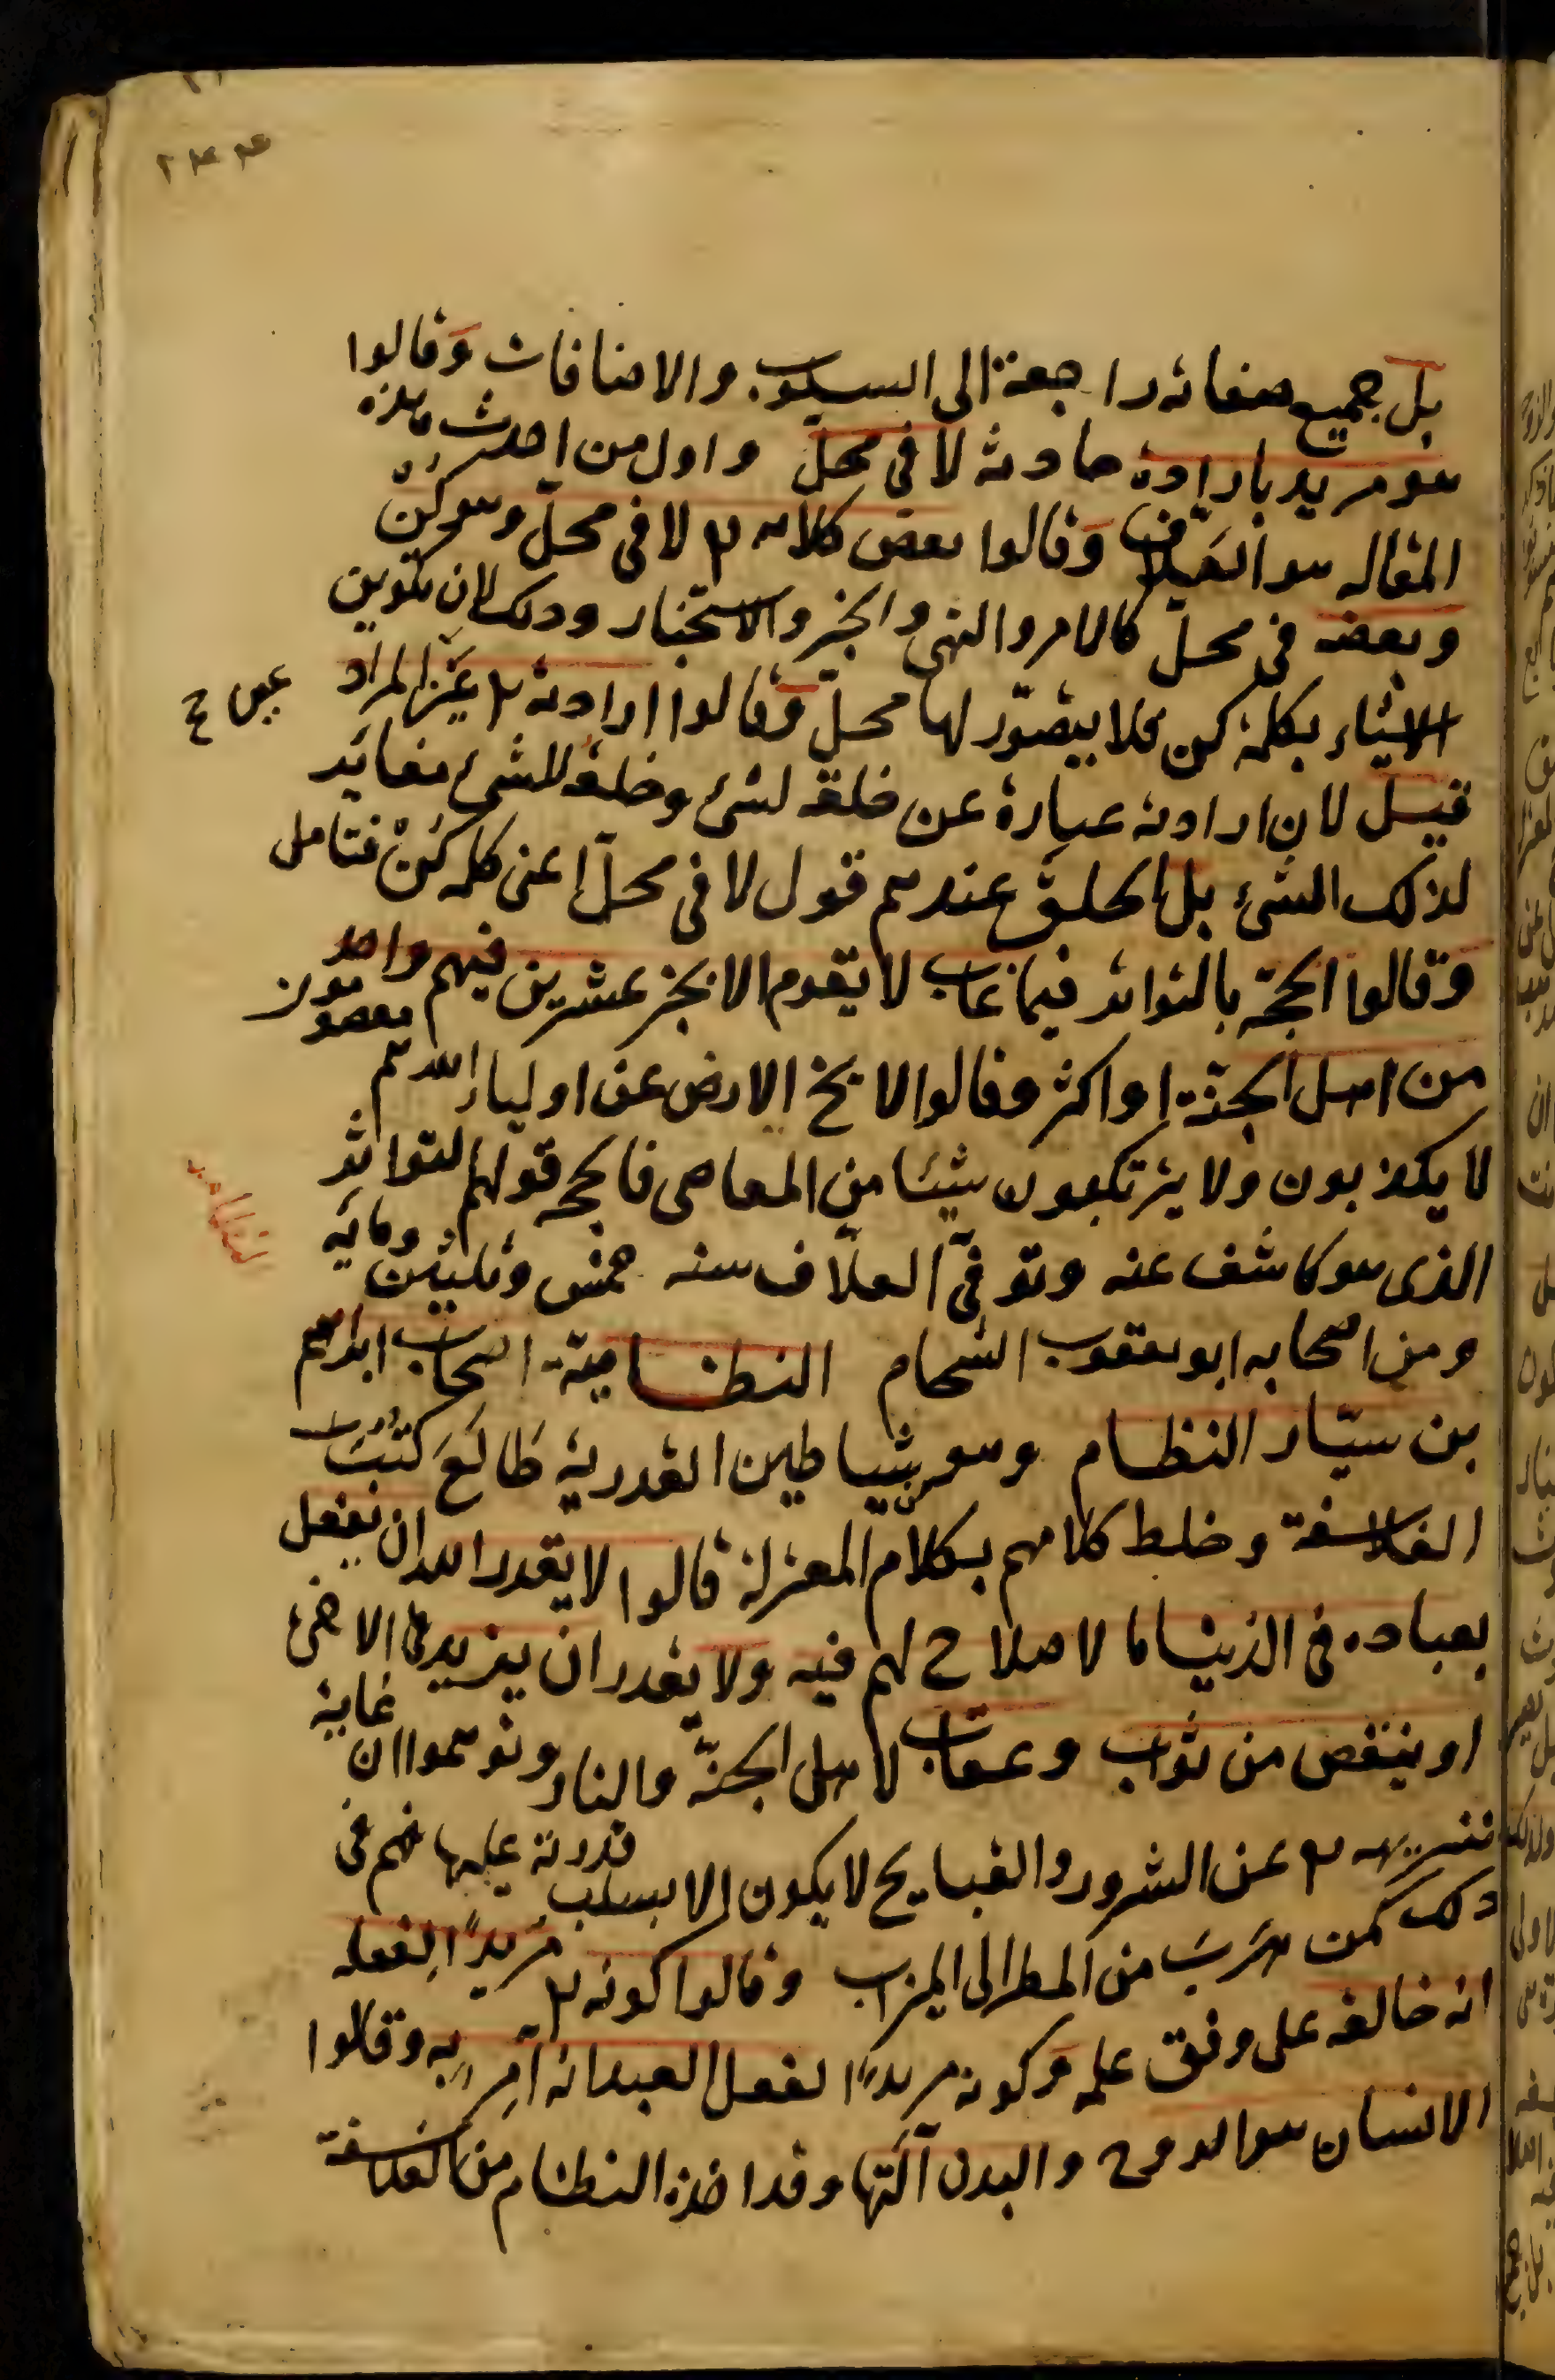 ٢٤٤
بل جميع صفاته راجعة الى السلوب والاضافات وقالوا
هو مريد بارادة حادثة لا فى محل واول من احدث هذه
المقاله هو العلاف وقالوا بعض كلامه تع لا فى محل وهو كن
وبعضه فى محل كالامر والنهى والخبر والاستخبار وذلك لان تكوين
الاشياء بكلمة كن فلا يتصور لها محل وقالوا ارادته تع غير المراد
قيل لان ارادته عبارة عن خلقه لشئ وخلقه للشئ مغاير
لذلك الشئ بل الخلق عندهم قول لا فى محل اعنى كلمه كن فتامل
وقالوا الحجة بالتواتر فيما غاب لا يقوم الا بخبر عشرين فيهم واحد
من اهل الجنة او اكثر وقالوا لا يخ الارض عن اولياء الله هم معصومون
لا يكذبون ولا يرتكبون شيئا من المعاصى فالحجه قولهم لا التواتر
الذى هو كاشف عنه وتوفى العلاف سنه خمس وثلثين ومائه
ومن اصحابه ابو يعقوب الشحام النظامية اصحاب ابراهيم
بن سيار النظام وهو من شياطين القدرية طالع كتب
الفلاسفة وخلط كلامهم بكلام المعتزلة قالوا لا يقدر الله ان يفعل
بعباده فى الدنيا ما لا صلاح لهم فيه ولا يقدر ان يزيد فى الاخرة
او ينقص من ثواب وعقاب لاهل الجنة والنار وتوهموا ان غاية
تنزيهه تع عن الشرور والقبايح لا يكون الا بسلب قدرته عليها فهم فى
ذلك كمن هرب من المطر الى الميزاب وقالوا كونه تع مريدا لفعله
انه خالقه على وفق علمه وكونه مريدا لفعل العبد انه آمر به وقالوا
الانسان هو الروح والبدن آلتها وقد اخذه النظام من الفلاسفة
النظاميه